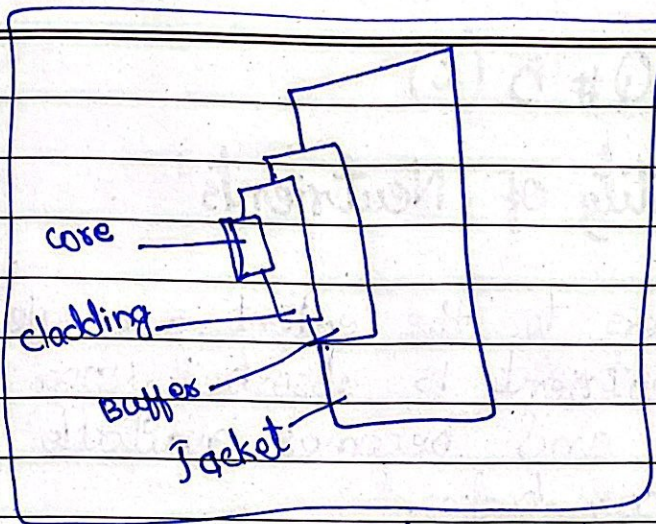 core
cladding
Buffer
Jacket